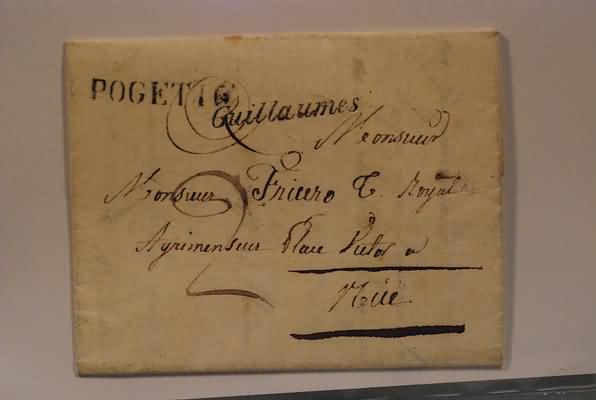 POGETTO
Guillaumes
Monsieur
Monsieur Friero T. Royal
Agrimenseur Place Victor a
Nice